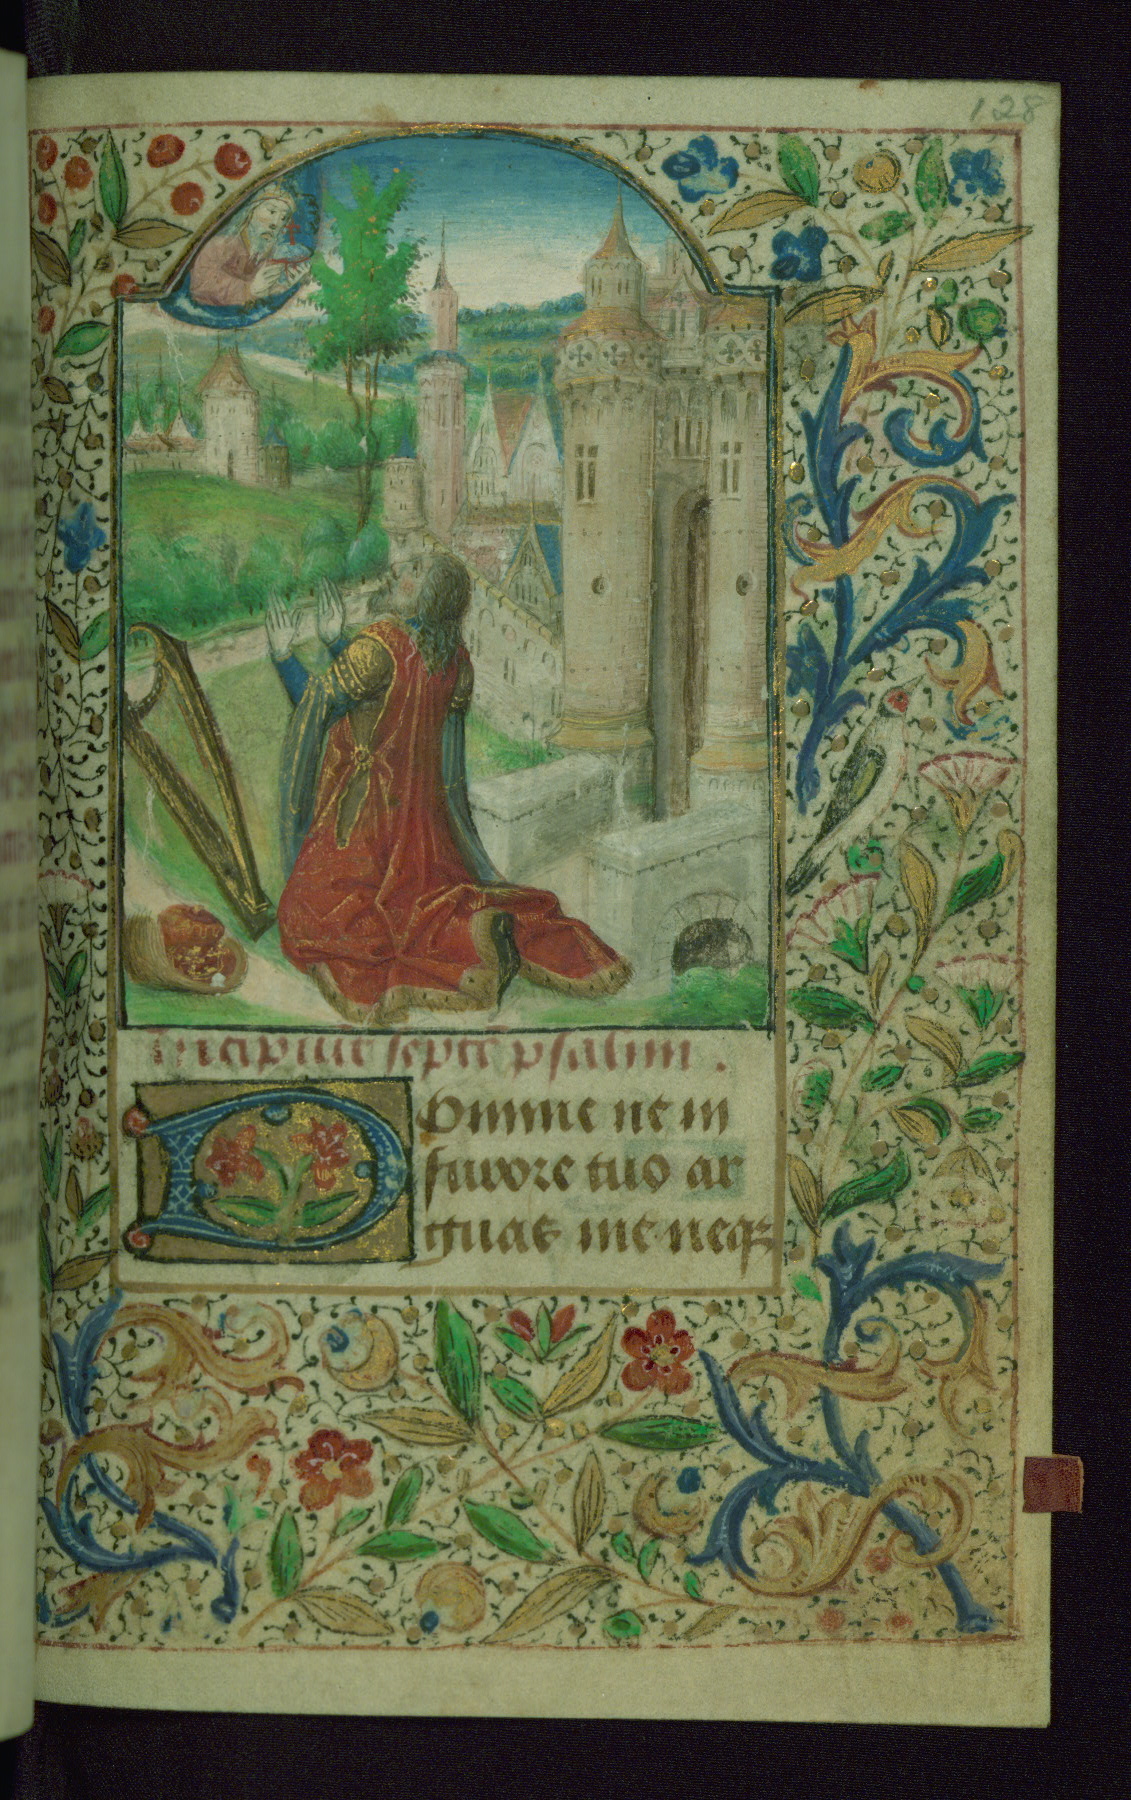 128
Incipiunt septe psalmi.
Domine ne in
furore tuo ar
guas me neq3